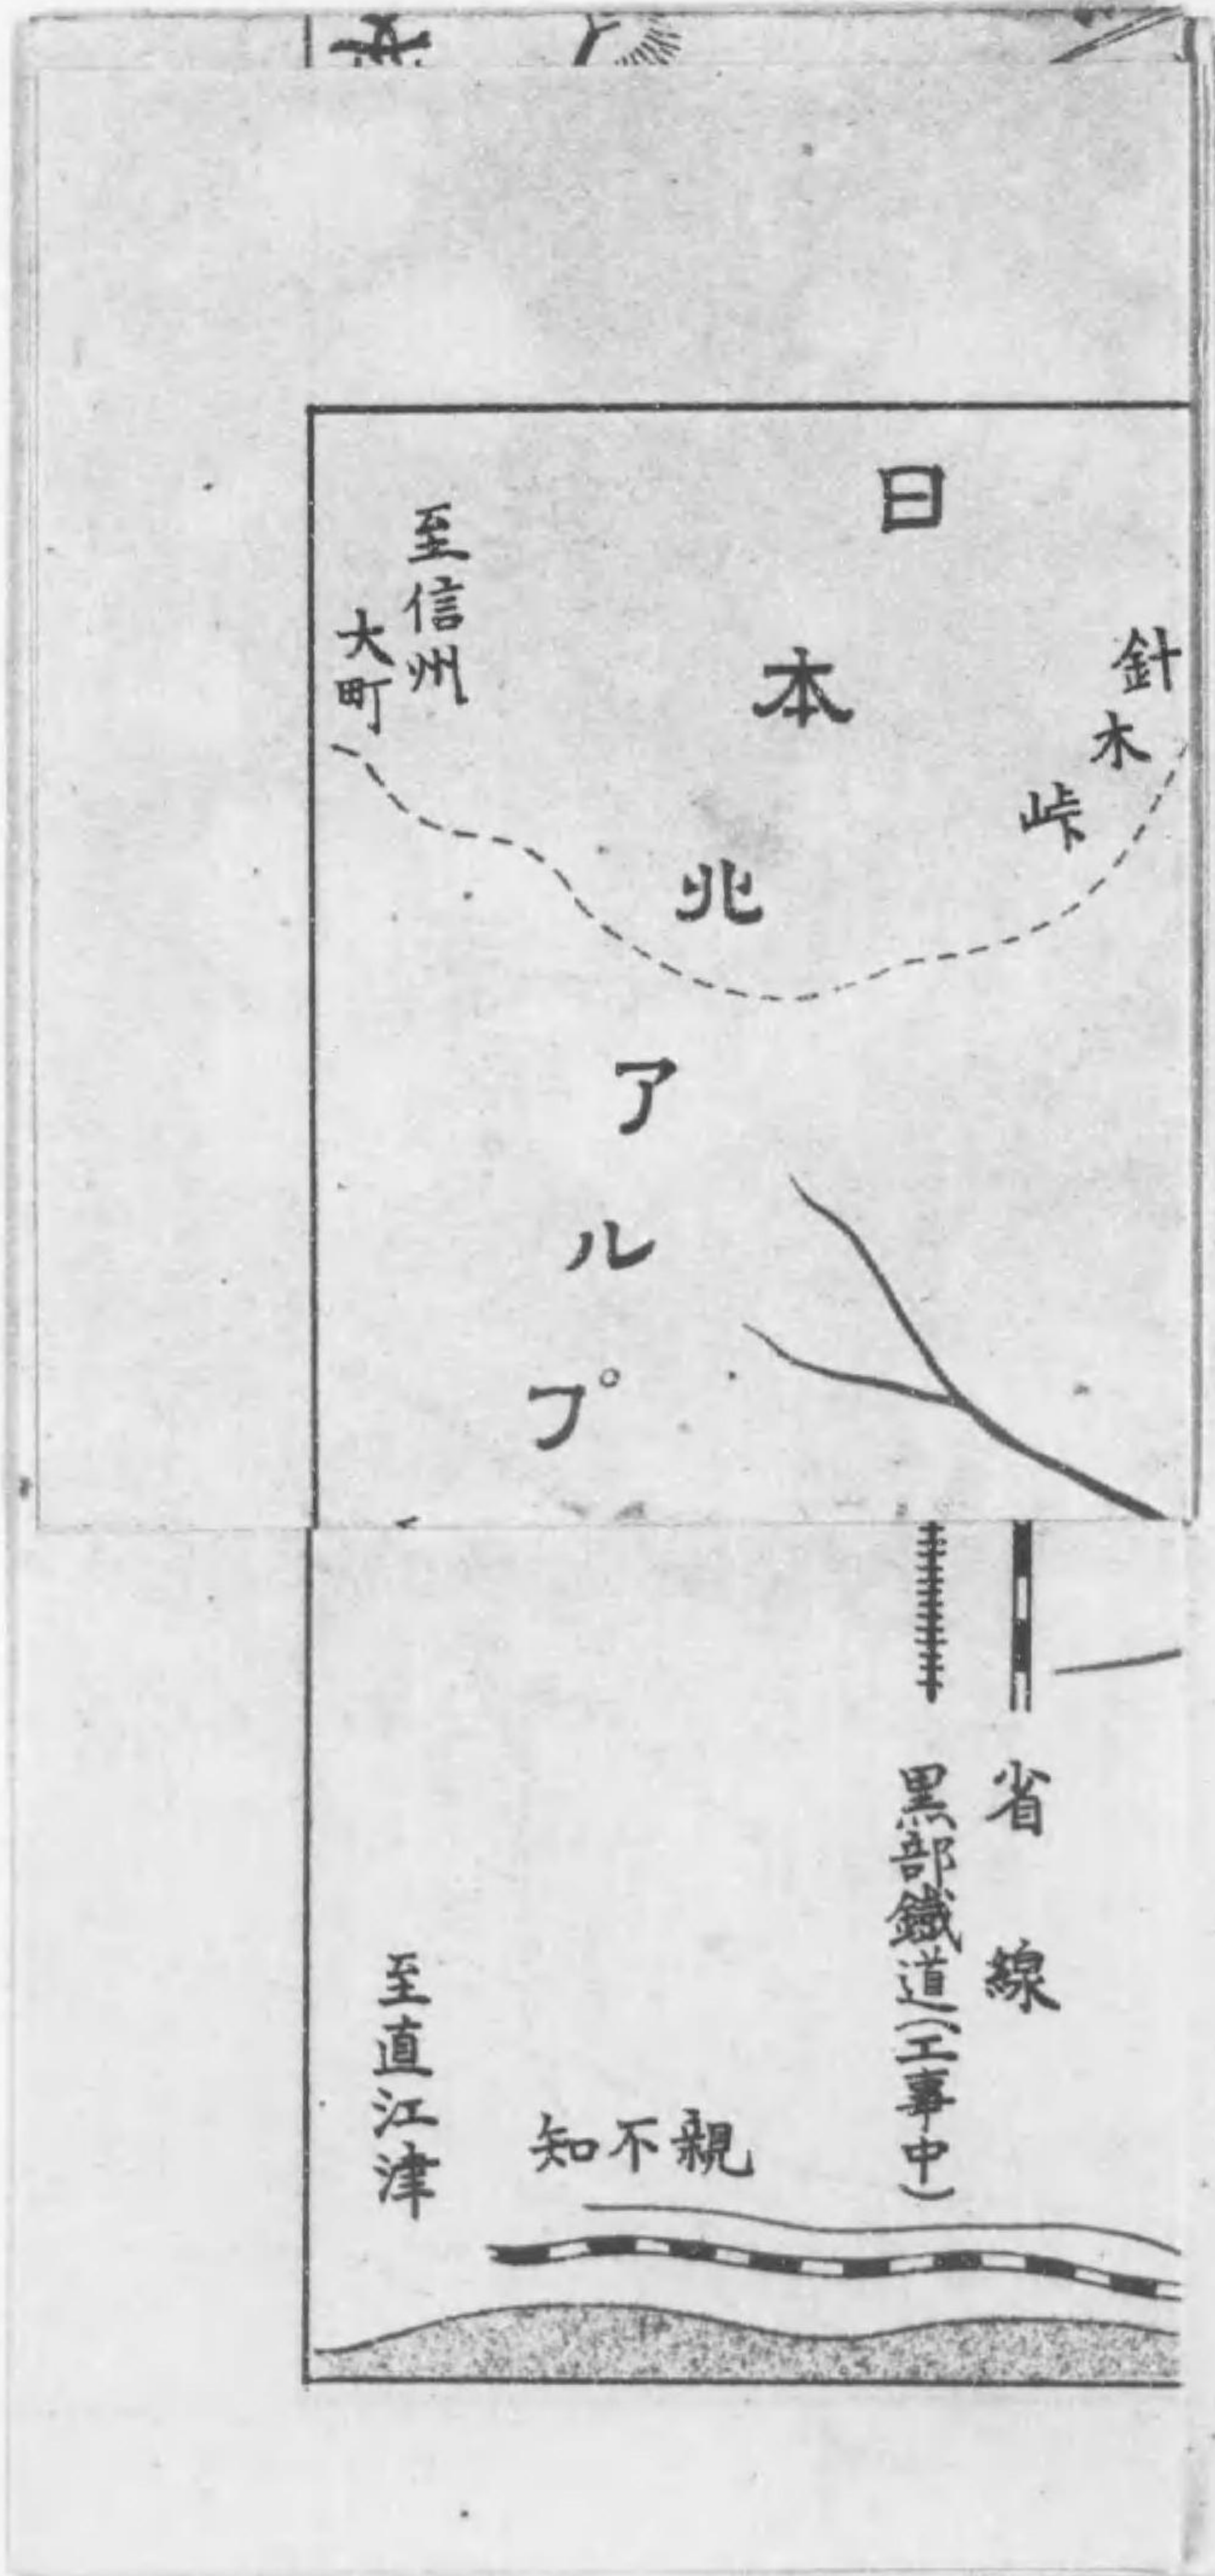 日本北アルプ
針木峠
至信州
大町
省線
黒部鐵道(工事中)
親不知
至直江津